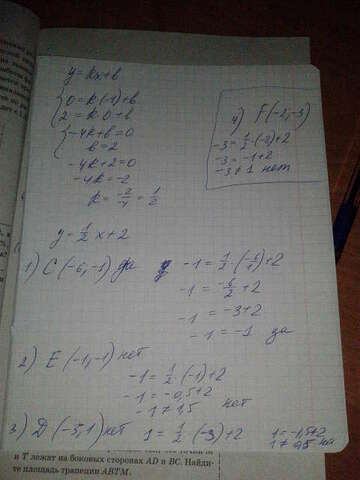 y = kx + b
0 = k(-4) + b
2 = k·0 + b
-4k + b = 0
b = 2
-4k + 2 = 0
-4k = -2
k = -2/-4 = 1/2
y = 1/2 x + 2
1) C(-6, -1) да
-1 = 1/2 · (-6) + 2
-1 = -6/2 + 2
-1 = -3 + 2
-1 = -1 да
2) E(-1, -1) нет
-1 = 1/2 · (-1) + 2
-1 = -0,5 + 2
-1 ≠ 1,5 нет
3) D(-3, 1) нет
1 = 1/2 · (-3) + 2
1 = -1,5 + 2
1 ≠ 0,5
4) F(-2, -3)
-3 = 1/2 · (-2) + 2
-3 = -1 + 2
-3 ≠ 1 нет
и T лежат на боковых сторонах AD и BC. Найди-
те площадь трапеции ABTM.